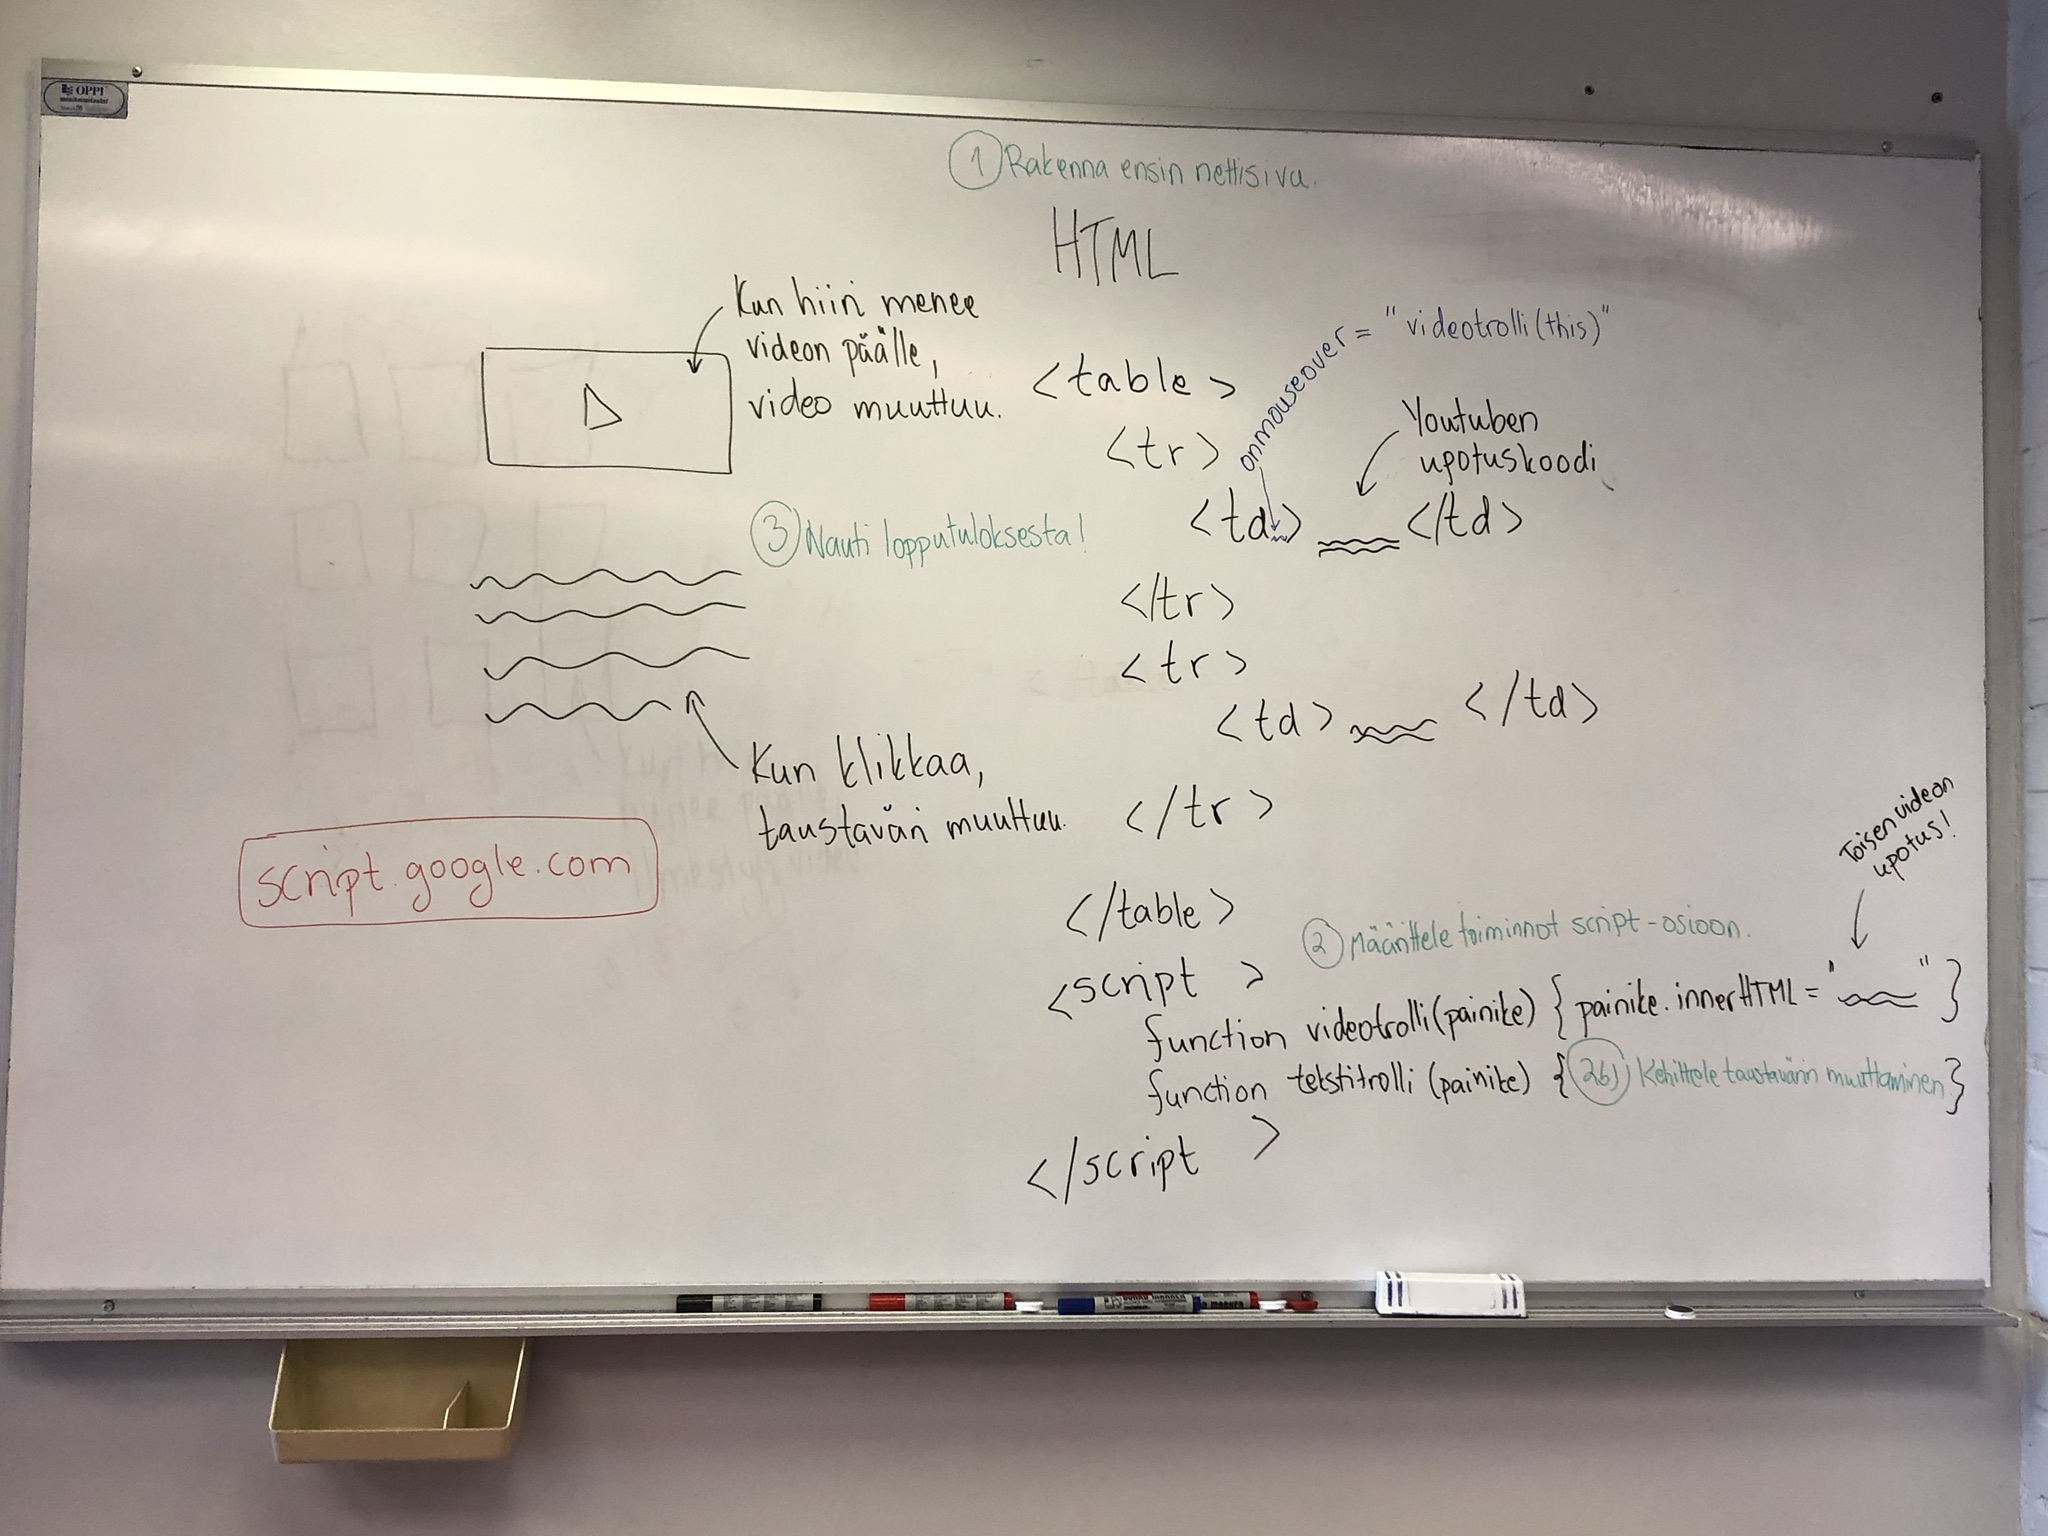 OPPI
1 Rakenna ensin nettisivu.
HTML
Kun hiiri menee
videon päälle,
video muuttuu.
onmouseover = "videotrolli(this)"
<table>
<tr>
Youtuben
upotuskoodi
<td> </td>
3 Nauti lopputuloksesta!
</tr>
<tr>
<td> </td>
Kun klikkaa,
taustaväri muuttuu.
</tr>
script.google.com
Toisen videon
upotus!
</table>
2 Määrittele toiminnot script-osioon.
<script >
function videotrolli(painike) { painike.innerHTML = " " }
function tekstitrolli (painike) { 2b) Kehittele taustavärin muuttaminen }
</script >